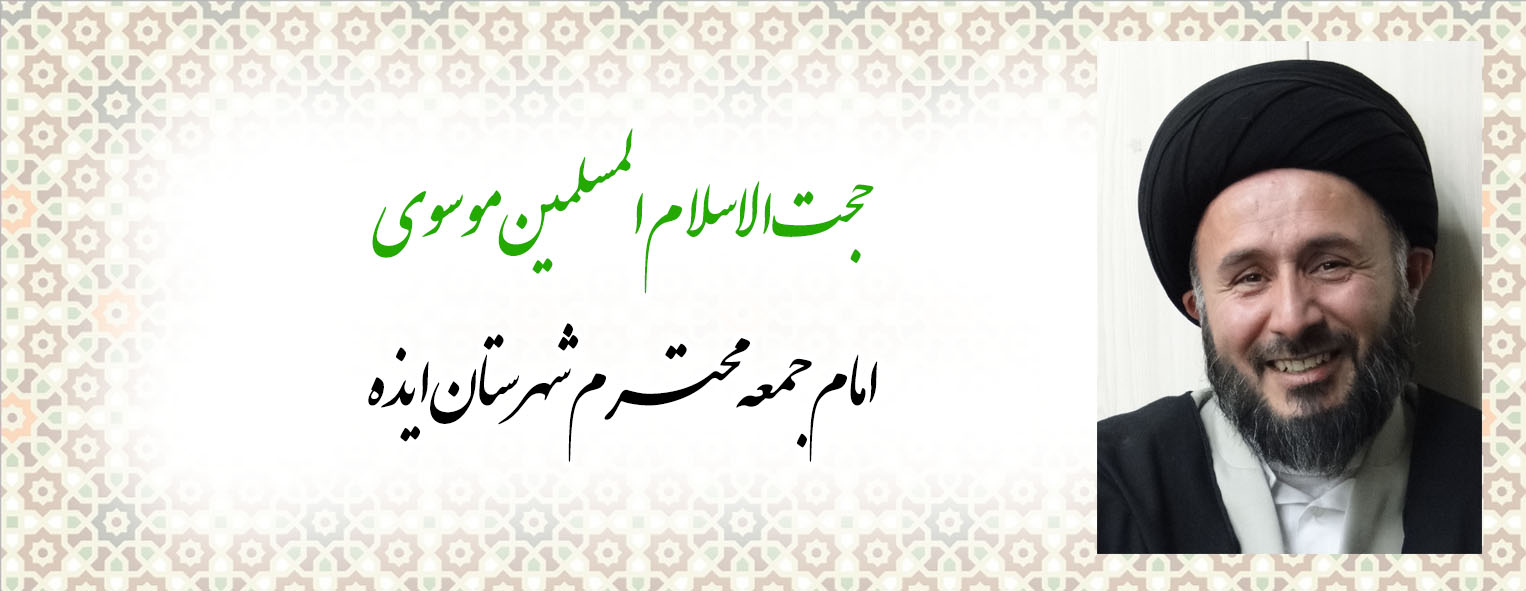 حجت الاسلام المسلمین موسوی
امام جمعه محترم شهرستان ایذه